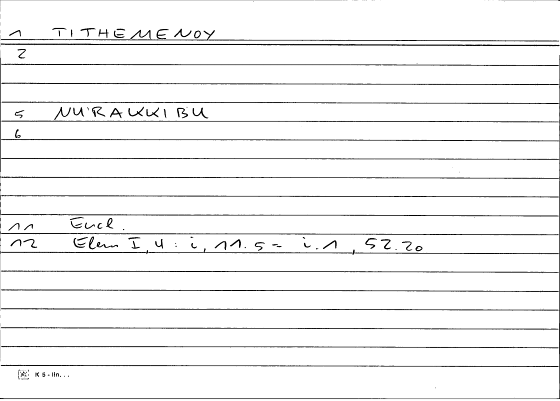 1 TITHEMENOY
2
5 NURAKKIBU
6
11 Eucl.
12 Elem I, 4 : i, 11.5 = i.1, 52.20
K 5 - lin...